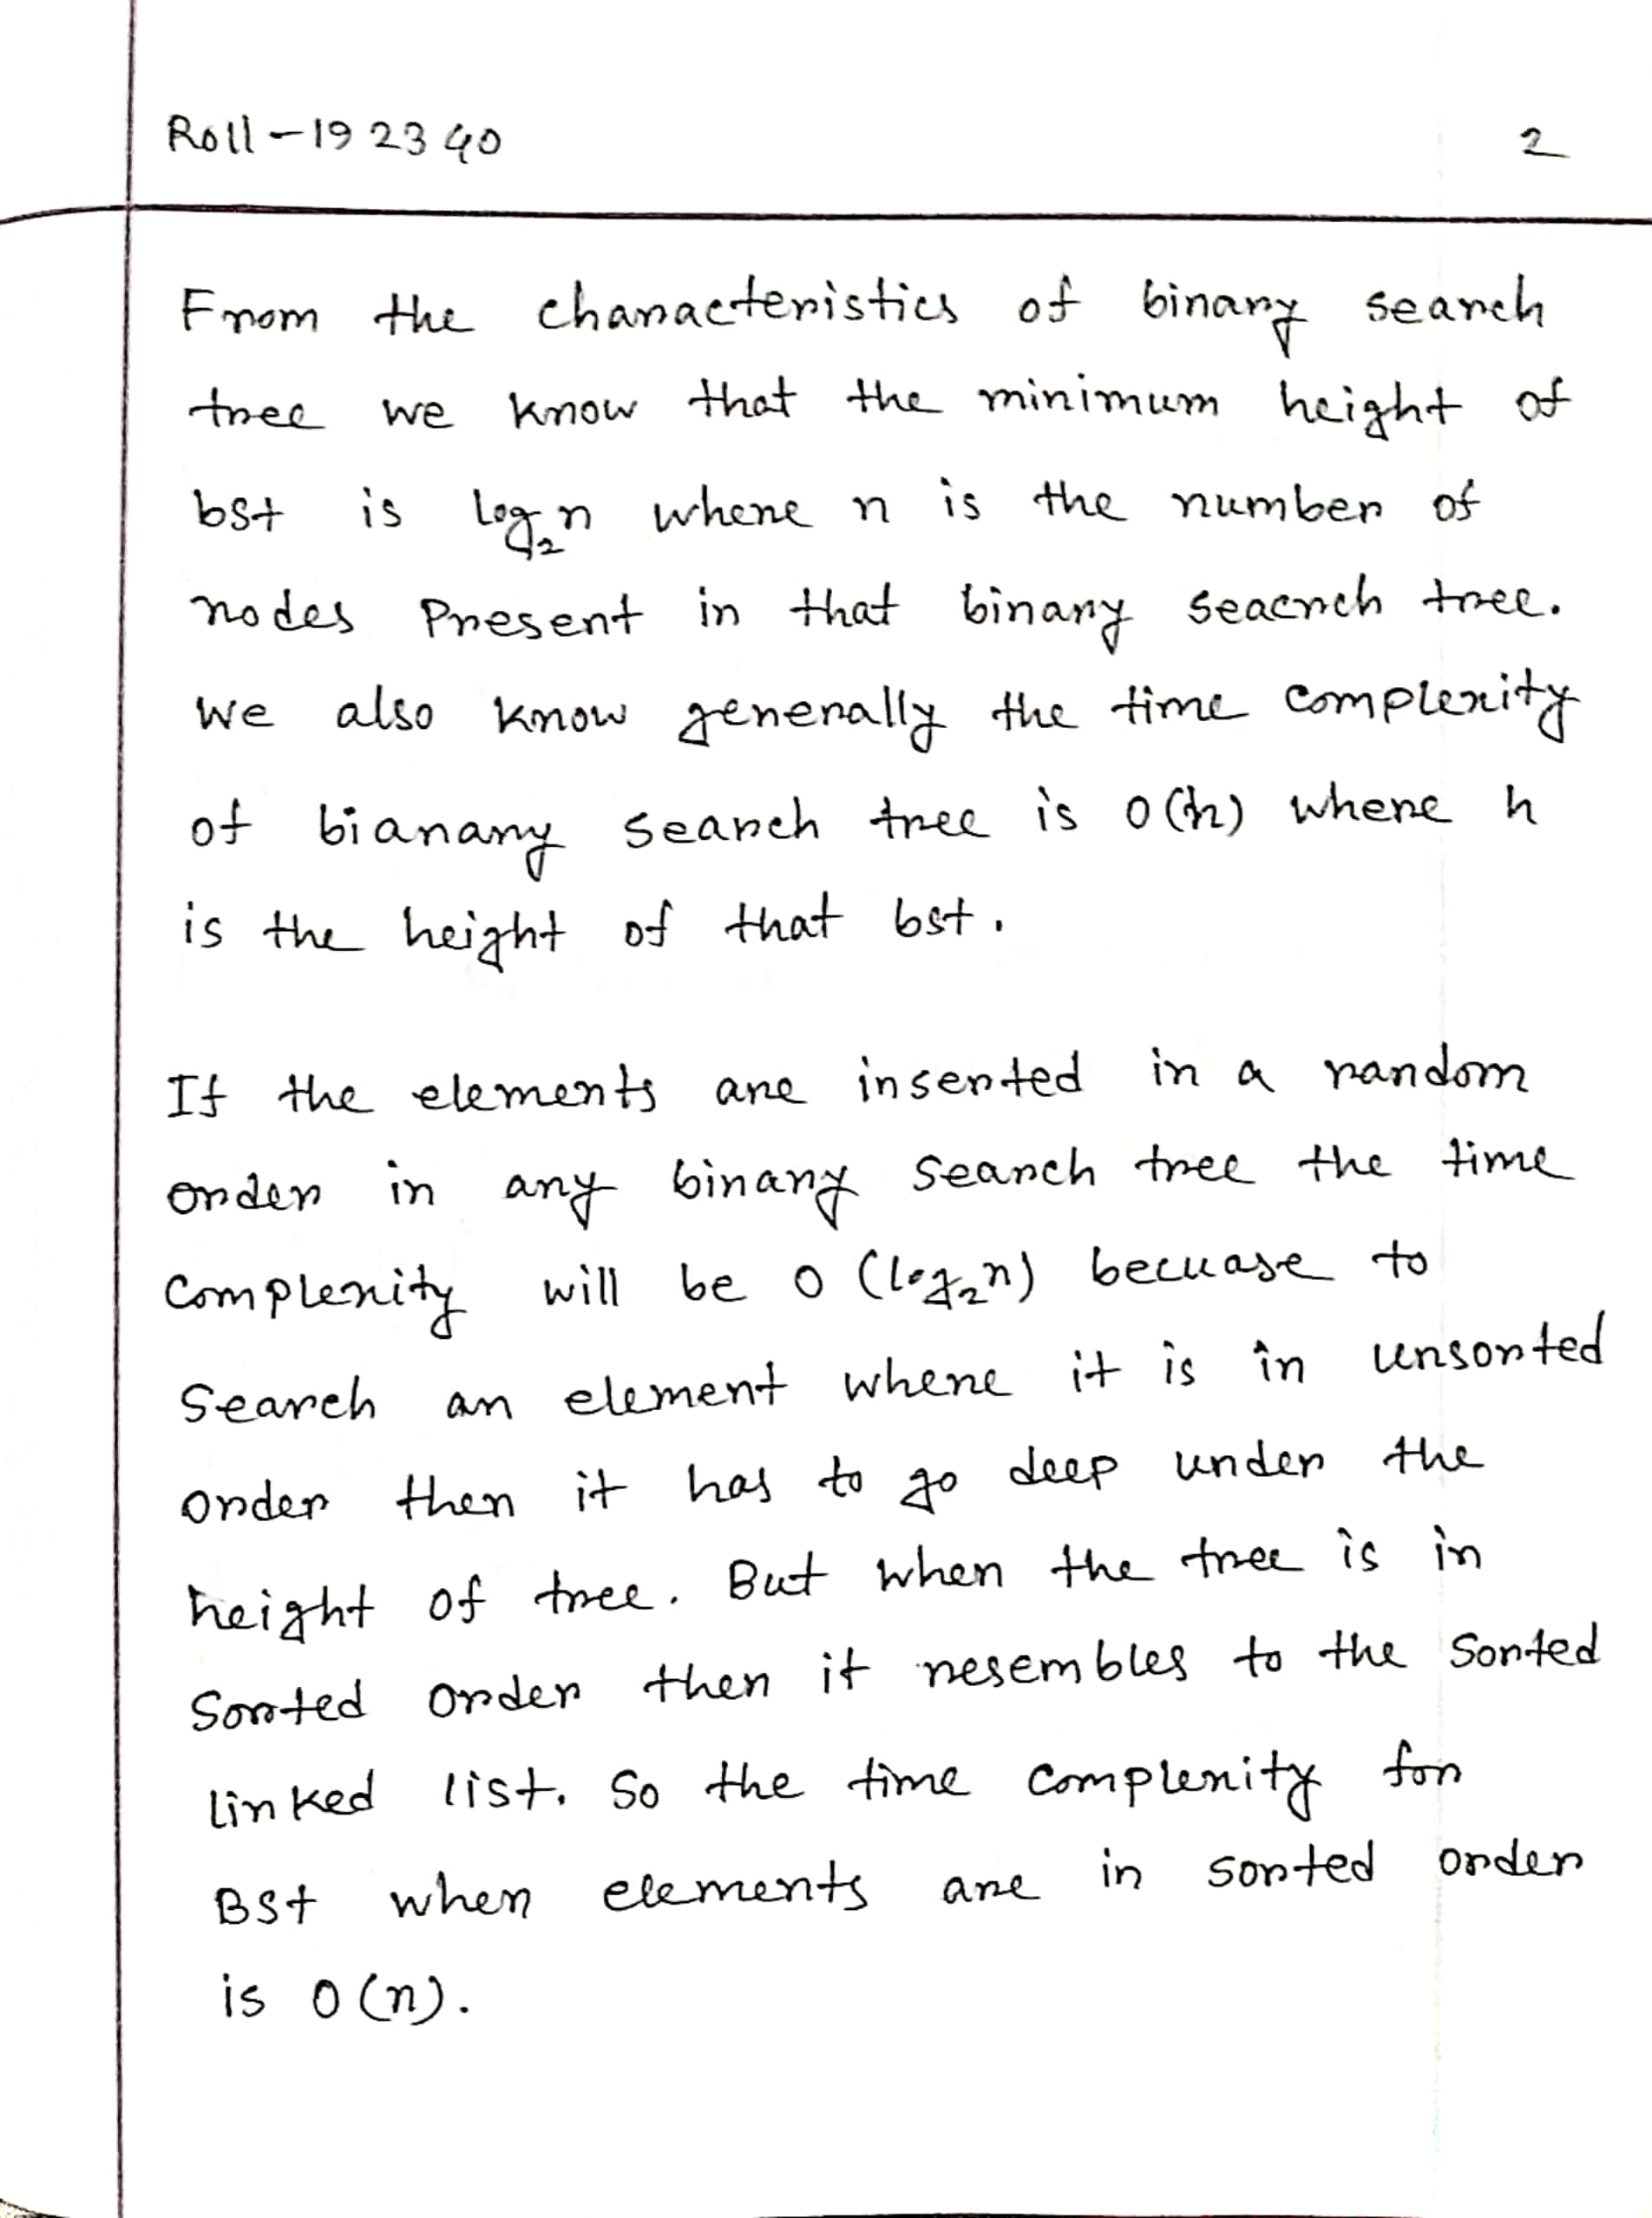 Roll - 192340
2
From the characteristics of binary search
tree we know that the minimum height of
bst is log₂n where n is the number of
nodes Present in that binary seacrch tree.
We also know generally the time complexity
of bianary search tree is O(h) where h
is the height of that bst.
If the elements are inserted in a random
order in any binary search tree the time
complexity will be O (log₂n) becuase to
Search an element where it is in unsorted
order then it has to go deep under the
height of tree. But when the tree is in
Sorted order then it resembles to the Sorted
linked list. So the time complexity for
BSt when elements are in sorted order
is O(n).